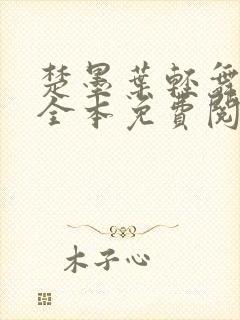 楚墨葉輕舞
全本免費閱
木子心